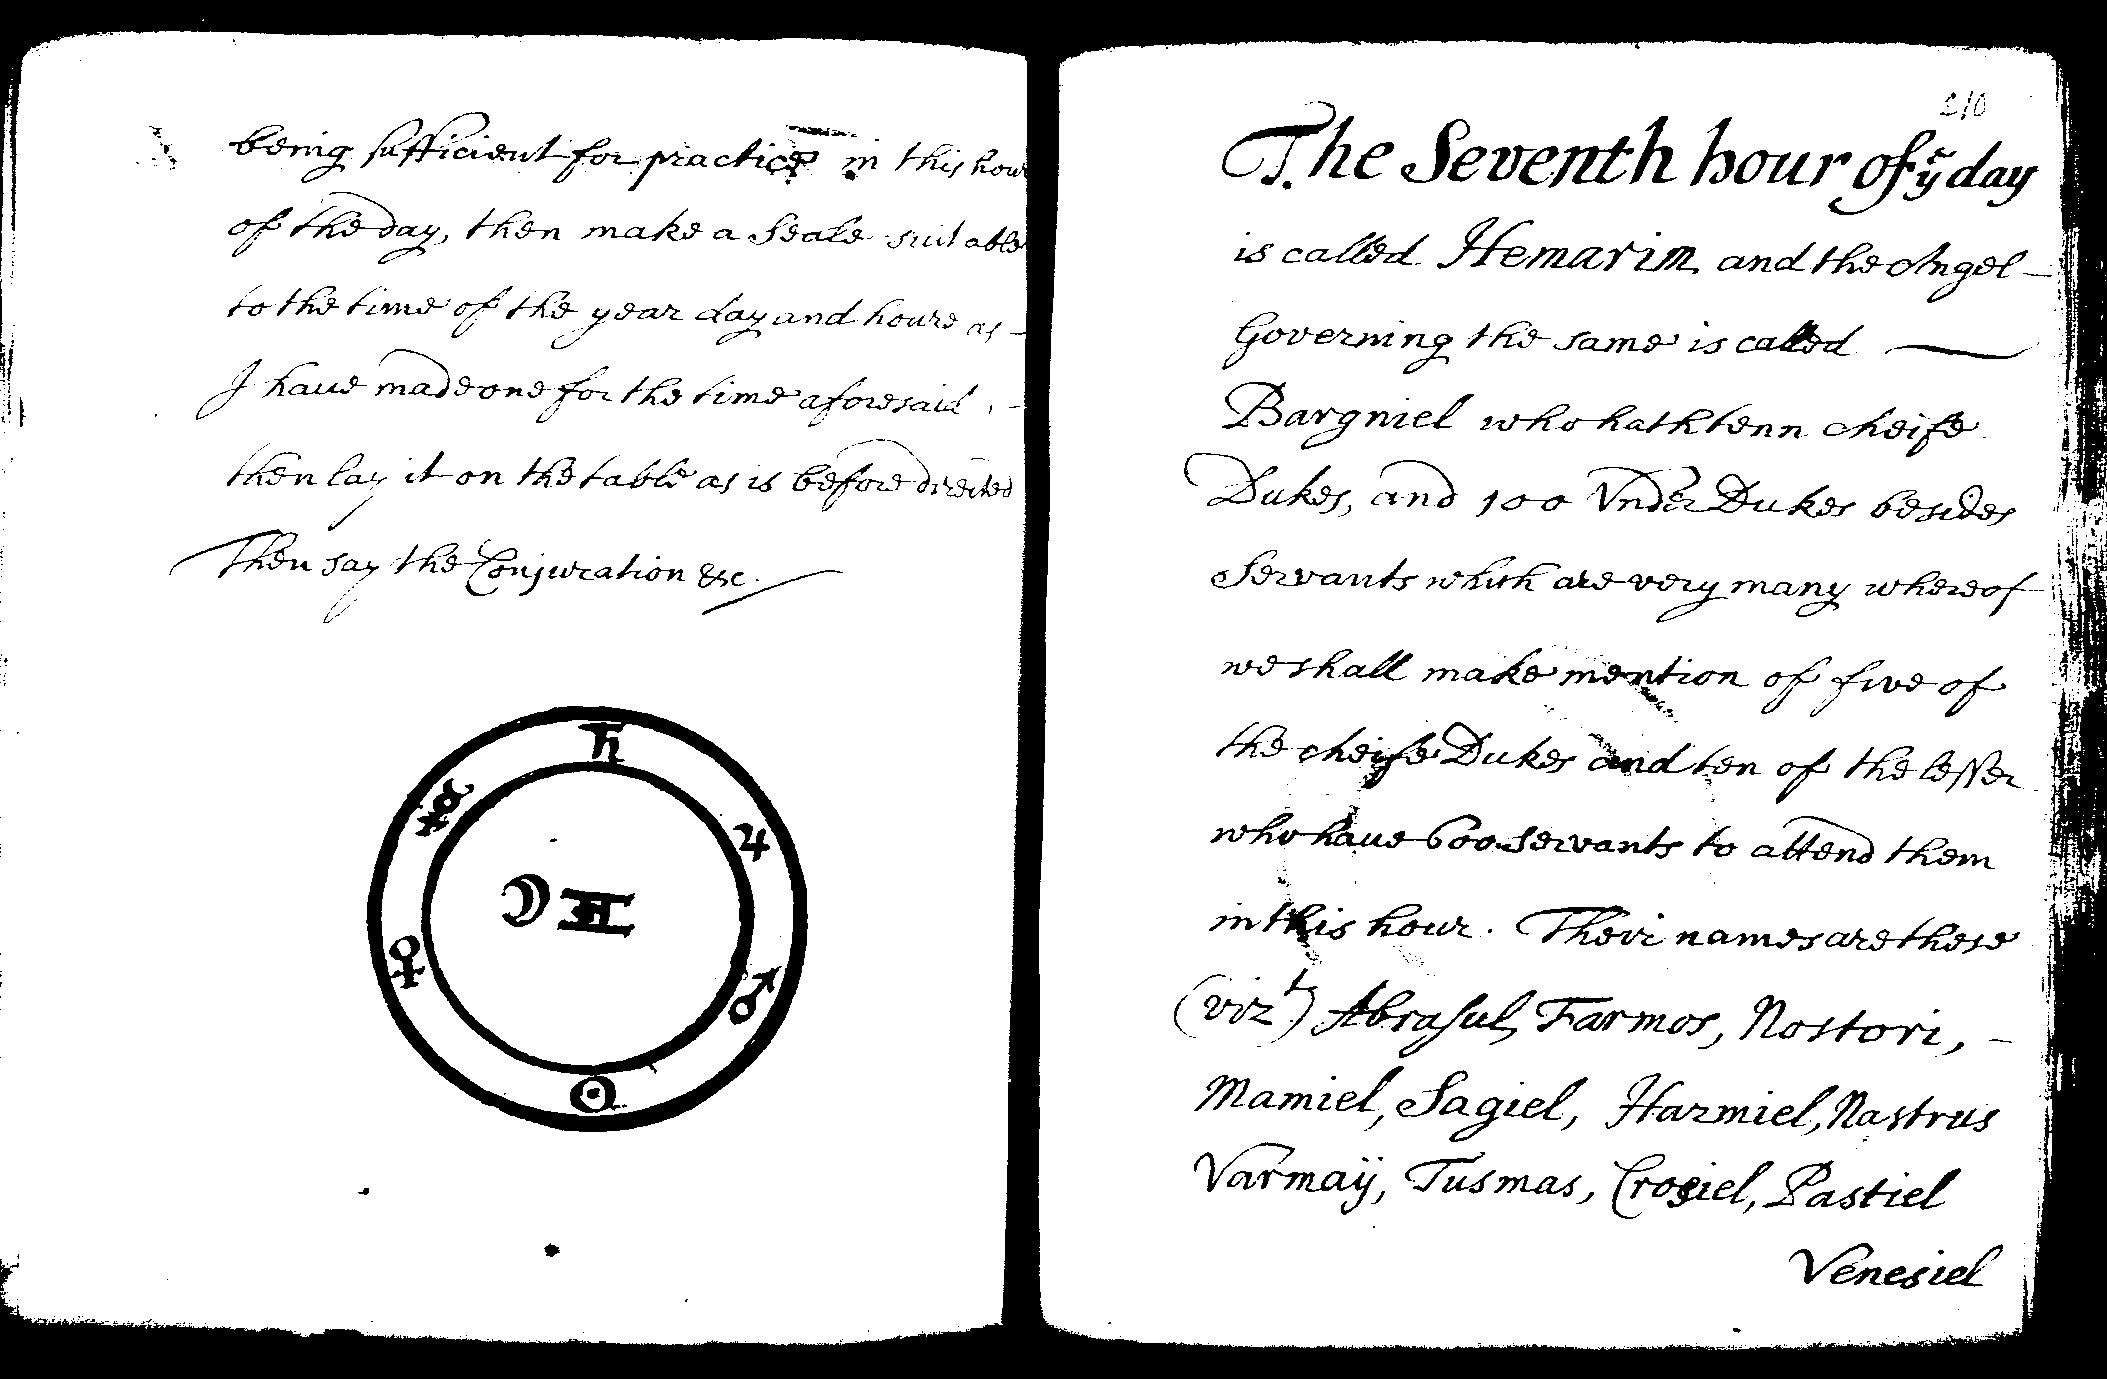 being sufficient for practice in this hour
of the day, then make a Seale suitable
to the time of the year day and houre as -
I have made one for the time aforesaid, -
then lay it on the table as is before directed
Then say the Conjuration &c.
♄
☿ ♃
☾ ♊
♀ ♂
☉
210
The Seventh hour of yͤ day
is called Hemarim and the Angel -
Governing the same is called —
Bargniel who hath tenn cheife
Dukes, and 100 Vnder Dukes besides
Servants which are very many whereof
we shall make mention of five of
the cheife Dukes and ten of the lesser
who haue 600 servants to attend them
in this hour. Their names are these
(vizᵗ) Abrasul, Farmos, Nostori, -
Mamiel, Sagiel, Harmiel, Nastrus
Varmaÿ, Tusmas, Crosiel, Pastiel
Venesiel